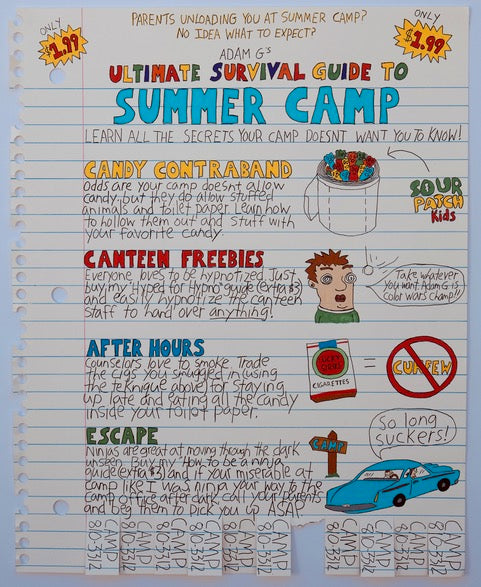 PARENTS UNLOADING YOU AT SUMMER CAMP?
NO IDEA WHAT TO EXPECT?
ONLY
$1.99
ONLY
$1.99
ADAM G'S
ULTIMATE SURVIVAL GUIDE TO
SUMMER CAMP
LEARN ALL THE SECRETS YOUR CAMP DOESNT WANT YOU TO KNOW!
CANDY CONTRABAND
Odds are your camp doesnt allow
candy, but they do allow stuffed
animals and toilet paper. Learn how
to hollow them out and stuff with
your favorite candy.
SOUR
PATCH
Kids
CANTEEN FREEBIES
Everyone loves to be hypnotized. Just
buy my "Hyped for Hypno" guide (extra $3)
and easily hypnotize the canteen
staff to hand over anything!
Take whatever
you want. Adam G is
Color wars champ!!
AFTER HOURS
Counselors love to smoke. Trade
the cigs you smuggled in (using
the teknique above) for staying
up late and eating all the candy
inside your toilet paper.
LUCKY
CIGARETTES
=
CURFEW
ESCAPE
Ninjas are great at moving through the dark
unseen. Buy my "How to be a ninja"
guide (extra $3) and if your miserable at
camp like I was, ninja your way to the
camp office after dark, call your parents
and beg them to pick you up ASAP.
CAMP
So long
suckers!
CAMP
810-3312
CAMP
810-3312
CAMP
810-3312
CAMP
810-3312
CAMP
810-3312
CAMP
810-3312
CAMP
810-3312
CAMP
810-3312
CAMP
810-3312
CAMP
810-3312